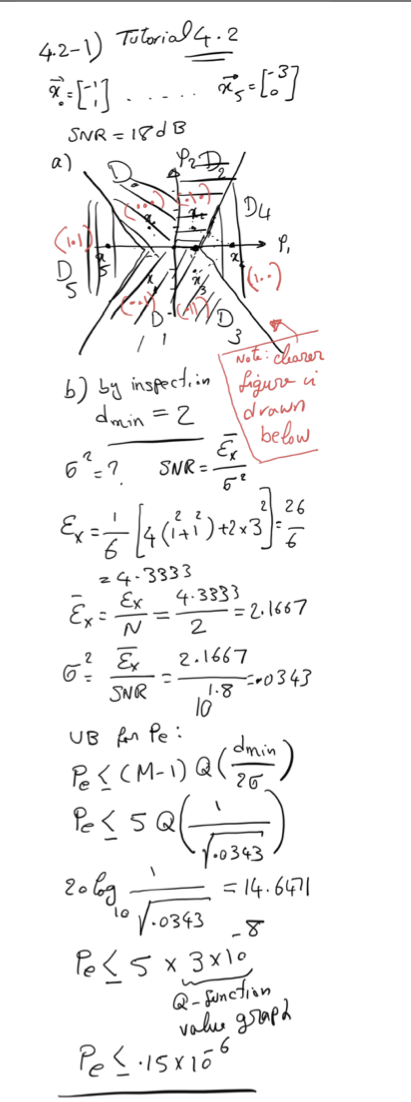 4.2-1) Tutorial 4.2
x⃗₀=[-1 1] ...... x⃗₅=[-3 0]
SNR = 18 dB
a)
φ₂
D₂
D₀
D₄
(1·1)
(···)
(·1·)
D₅
x₅
φ₁
(1··)
(··1)
(·11)
D₁
D₃
Note: clearer
figure is
drawn
below
b) by inspection
dmin = 2
σ² = ? SNR = Ēx/σ²
Ɛx = 1/6 [4(1²+1²)+2×3²] = 26/6
= 4.3333
Ɛ̄x = Ɛx/N = 4.3333/2 = 2.1667
σ² = Ɛ̄x/SNR = 2.1667/10^1.8 = .0343
UB for Pe:
Pe ≤ (M-1) Q(dmin/2σ)
Pe ≤ 5 Q(1/√.0343)
20 log₁₀ 1/√.0343 = 14.6471
Pe ≤ 5 × 3×10⁻⁸
Q-function
value graph
Pe ≤ .15×10⁻⁶